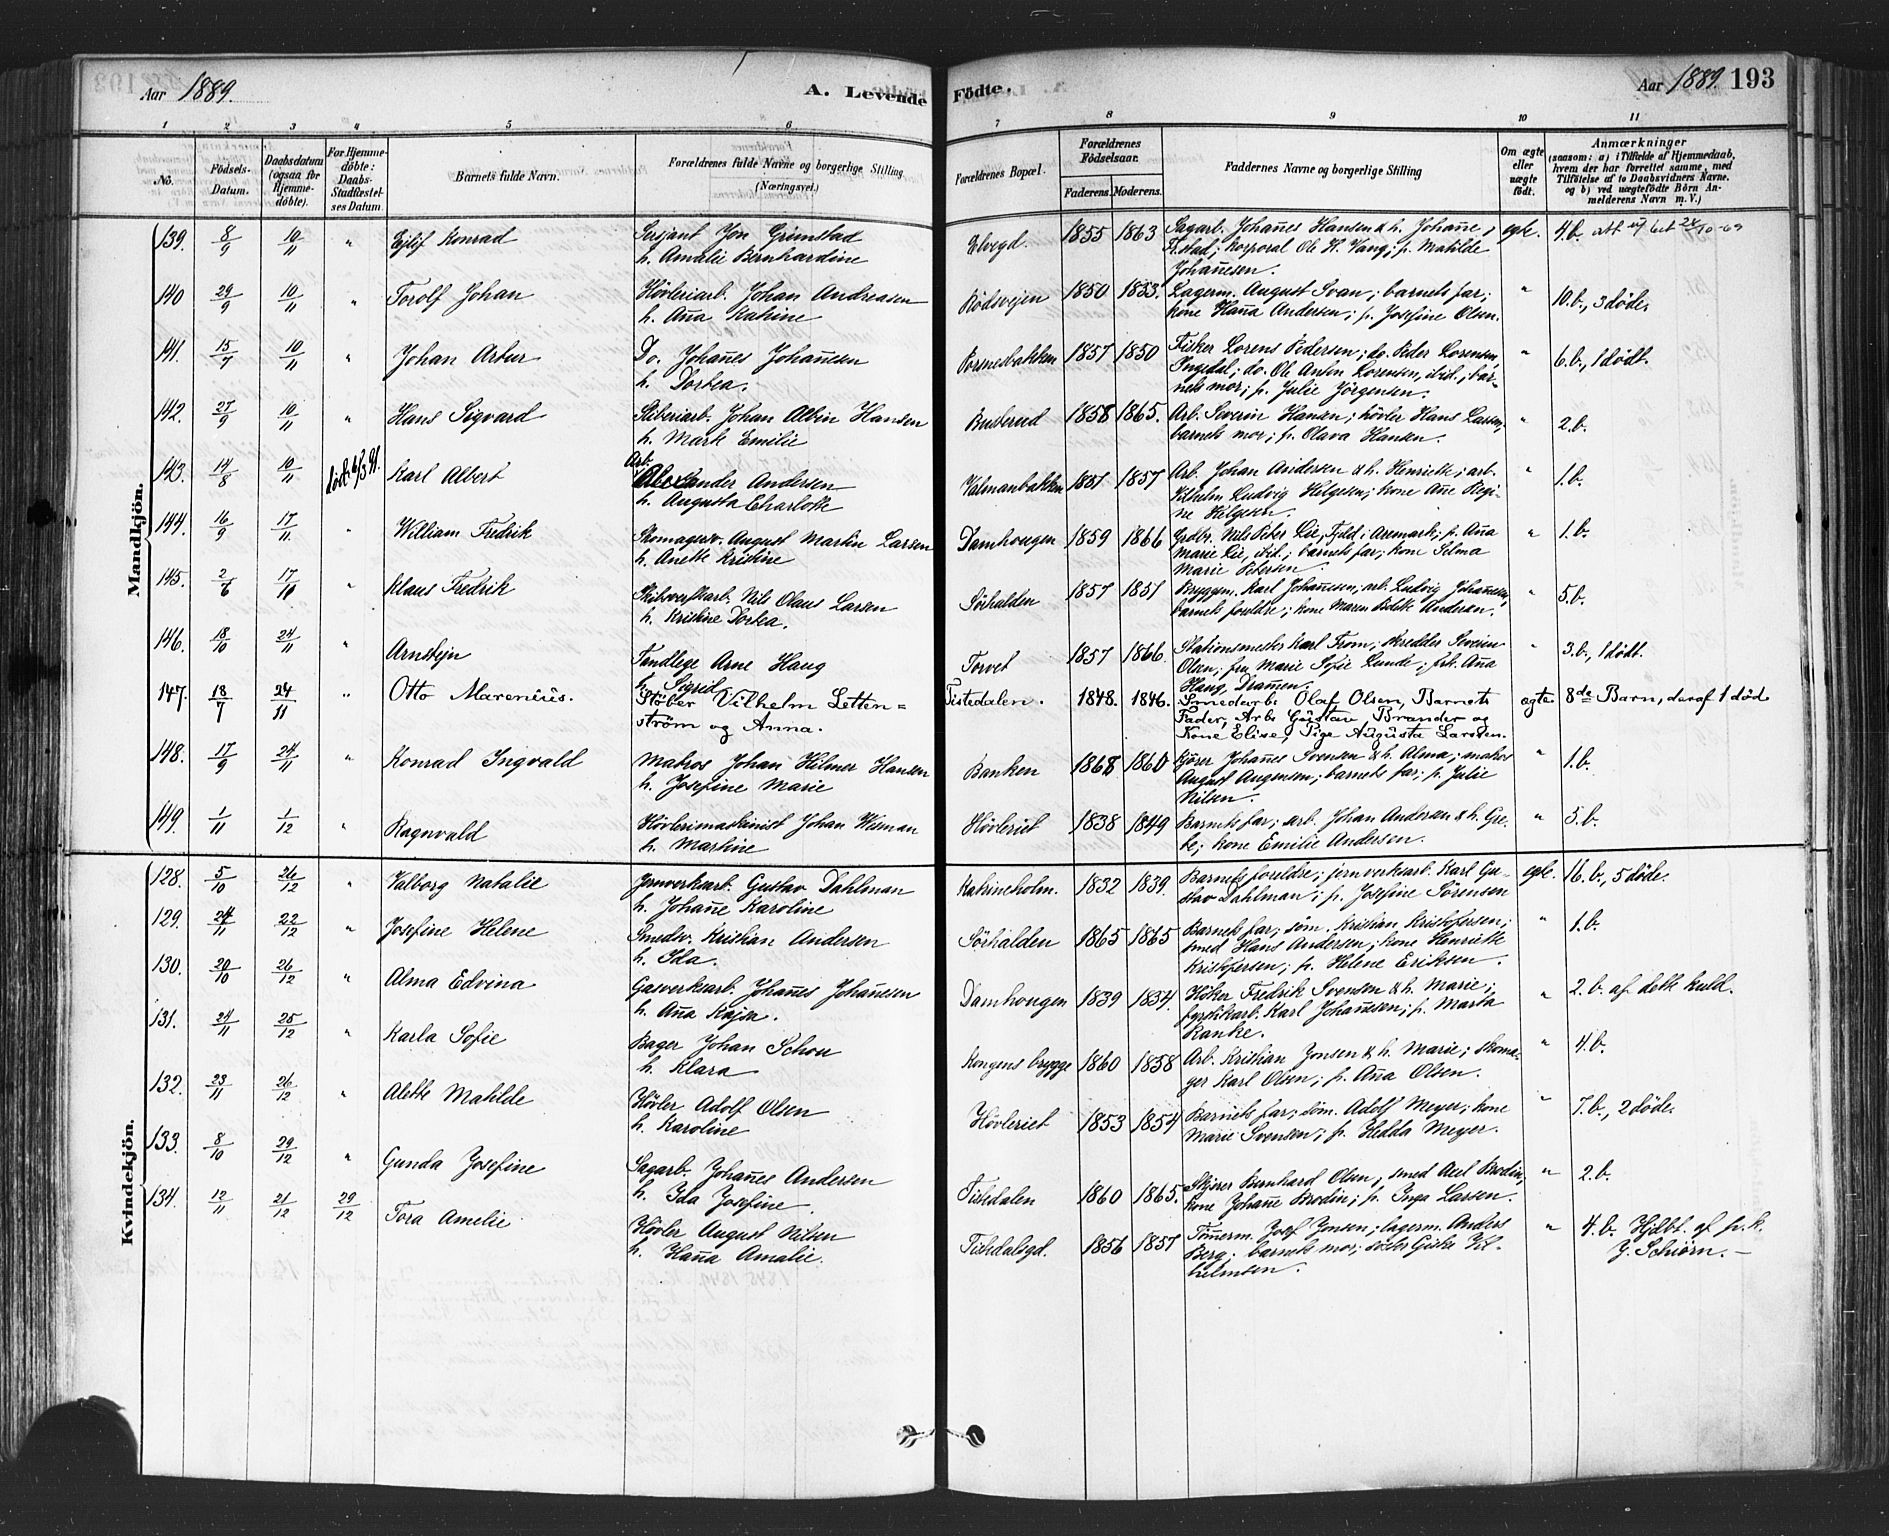 Aar 1889.
A. Levende Födte.
Aar 1889. 193
1 2 3 4 5 6 7 8 9 10 11
No.
Födsels-Datum.
Daabsdatum (ogsaa for Hjemme-döbte).
For Hjemme-döbte: Daabs-Stadfæstel-ses Datum.
Barnets fulde Navn.
Forældrenes fulde Navne og borgerlige Stilling (Næringsvei.)
Forældrenes Bopæl.
Forældrenes Födselsaar.
Faderens. Moderens.
Faddernes Navne og borgerlige Stilling
Om ægte eller uægte födt.
Anmærkninger
(saasom: a) i Tilfælde af Hjemmedaab, hvem der har forrettet samme, med Tilföielse af to Daabsvidners Navne. og b) ved uægtefödte Börn An-melderens Navn m. V.)
Mandkjön.
139. 8/9 10/11 " Ejlif Konrad
Sersjant Jon Grimstad
h. Amalie Bernhardine
Elvegd. 1855 1863
Sagarb. Johan̄es Hansen & h. Johan̄e,
korporal Ole H. Vang; p. Matilde
Johan̄esen.
egte. 4.b.
140 29/9 10/11 " Torolf Johan
Hövleriarb. Johan Andreasen
h. An̄a Katrine
Rödsvejen 1850 1853.
Lagerm. August Svan; barnets far;
kone Han̄a Andersen; p. Josefine Olsen.
" 10.b., 3 döde.
141. 15/7 10/11 " Johan Artur
Do. Johan̄es Johan̄esen
h. Dortea.
Porsnesbakken 1857 1850
Fisker Lorens Pedersen; do. Peder Lorensen,
Ingedal; do. Ole Anton Lorensen, ibid.; bar-
nets mor; p. Julie Jörgensen.
" 6.b., 1 dödt.
142. 27/9 10/11 " Hans Sigvard
Sliberiarb. Johan Albin Hansen
h. Marte Emilie
Busterud 1858 1865.
Arb. Severin Hansen; hövler Hans Larsen,
barnets mor; p. Olava Hansen.
" 2.b.
143. 14/8 10/11 död. 6/3 91. Karl Albert
Arb. Alexander Andersen
h. Augusta Charlotte
Valmanbakken 1857
Arb. Johan Andersen & h. Henriette; arb.
Vilhelm Ludvig Helgesen; kone An̄e Regi-
ne Helgesen.
" 1.b.
144. 16/9 17/11. " William Fredrik
Skomagersv. August Martin Larsen
h. Anette Kristine
Damhougen 1859 1866
Grdbr. Nils Peter Lie, Fjeld i Aremark; p. An̄a
Marie Lie, ibid.; barnets far; kone Selma
Marie Petersen.
" 1.b.
145. 2/6 17/10 " Klaus Fredrik
Skibsverftarb. Nils Olaus Larsen
h. Kristine Dortea.
Sörhalden 1857 1851
Bryggem. Karl Johan̄esen; arb. Ludvig Johan̄esen,
barnets foreldre; kone Maren Andersen.
" 5.b.
146. 18/10 24/11 " Arnstejn
Tandlege Arne Haug
h. Sigrid
Torvet 1857 1866.
Stationsmester Karl From; skredder Severin
Olsen; fru Marie Sofie Lunde; frk. An̄a
Haug, Dram̄en.
" 3.b., 1 dödt.
147. 18/7 24/11 " Otto Marenius.
Støber Vilhelm Letten=
ström og Anna.
Tistedalen. 1848. 1846.
Smedarb: Olaf Olsen, Barnets
Fader, Arb: Gustav Brander og
Kone Elise, Pige Augusta Larsen.
ægte 8de Barn, deraf 1 död
148. 17/9 24/11 " Konrad Ingvald
Matros Johan Hilmer Hansen
h. Josefine Marie
Banken 1868 1860
Kjörer Johan̄es Svensen & h. Alma; matros
August Augensen; barnets far; p. Julie
Nilsen.
" 1.b.
149. 1/11 1/12 " Ragnvald
Hövlerimaskinist Johan Wisman
h. Martine
Hövleriet 1838 1849
Barnets far; arb. Johan Andersen & h. Gre-
te; kone Emilie Andersen.
" 5.b.
Kvindekjön.
128. 5/10 26/12 " Valborg Natalie
Jernverksarb. Gustav Dahlman
h. Johan̄e Karoline
Katrineholm. 1832 1839.
Barnets foreldre; jernverksarb. Karl Gu-
stav Dahlman; p. Josefine Sörensen
egte. 16.b., 5 döde.
129. 24/11 22/12 " Josefine Helene
Smedsv. Kristian Andersen
h. Ida.
Sörhalden 1865 1865
Barnets far; söm. Kristian Kristofersen;
smed Hans Andersen; kone Henriette
Kristofersen; p. Helene Eriksen.
" 1.b.
130. 20/10 26/12 " Alma Edvina
Gasverksarb. Johan̄es Johan̄esen
h. An̄a Kajsa.
Damhougen 1839 1834.
Höker Fredrik Svensen & h. Marie;
fyrstikarb. Karl Johan̄esen; p. Marta
Ranke.
" 2.b. af dette kuld.
131. 24/11 25/12 " Karla Sofie
Bager Johan Schou
h. Klara
Kongens brygge 1860 1858
Arb. Kristian Jonsen & h. Marie; skoma-
ger Karl Olsen; p. An̄a Olsen.
" 4.b.
132. 23/11 26/12 " Alette Matilde
Hövler Adolf Olsen
h. Karoline
Hövleriet 1853 1854
Barnets far; söm. Adolf Meyer; kone
Marie Svensen; p. Hedda Meyer.
" 7.b., 2 döde.
133. 8/10 29/12 " Gunda Josefine
Sagarb. Johan̄es Andersen
h. Ida Josefine
Tistedalen 1860 1865.
Skjörer Bernhard Olsen; smed Axel Brodin,
kone Johan̄e Brodin; p. Inga Larsen.
" 2.b.
134. 12/11 21/12 29/12 Tora Amelie
Hövler August Nilsen
h. Han̄a Amalie.
Tistedalsgd. 1856 1857
Töm̄erm. Josef Jonsen; lagerm. Anders
Berg; barnets mor; söster Giska Vil-
helmsen.
" 4.b. Hjdbt. af p. k.
J. Schiörn.-